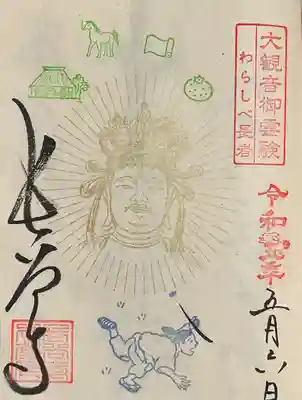 大観音御霊験
わらしべ長者
令和
年
五月六日
長谷寺